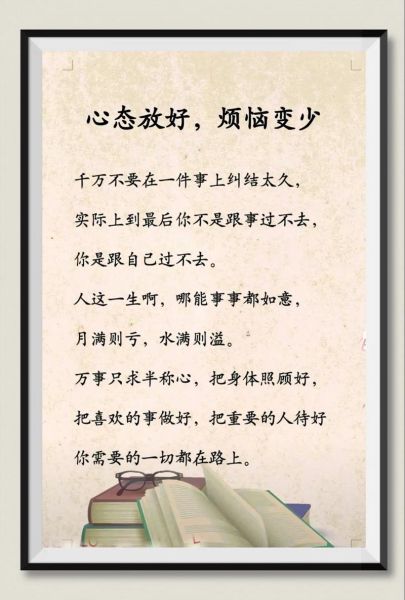 心态放好，烦恼变少
千万不要在一件事上纠结太久，
实际上到最后你不是跟事过不去，
你是跟自己过不去。
人这一生啊，哪能事事都如意，
月满则亏，水满则溢。
万事只求半称心，把身体照顾好，
把喜欢的事做好，把重要的人待好
你需要的一切都在路上。